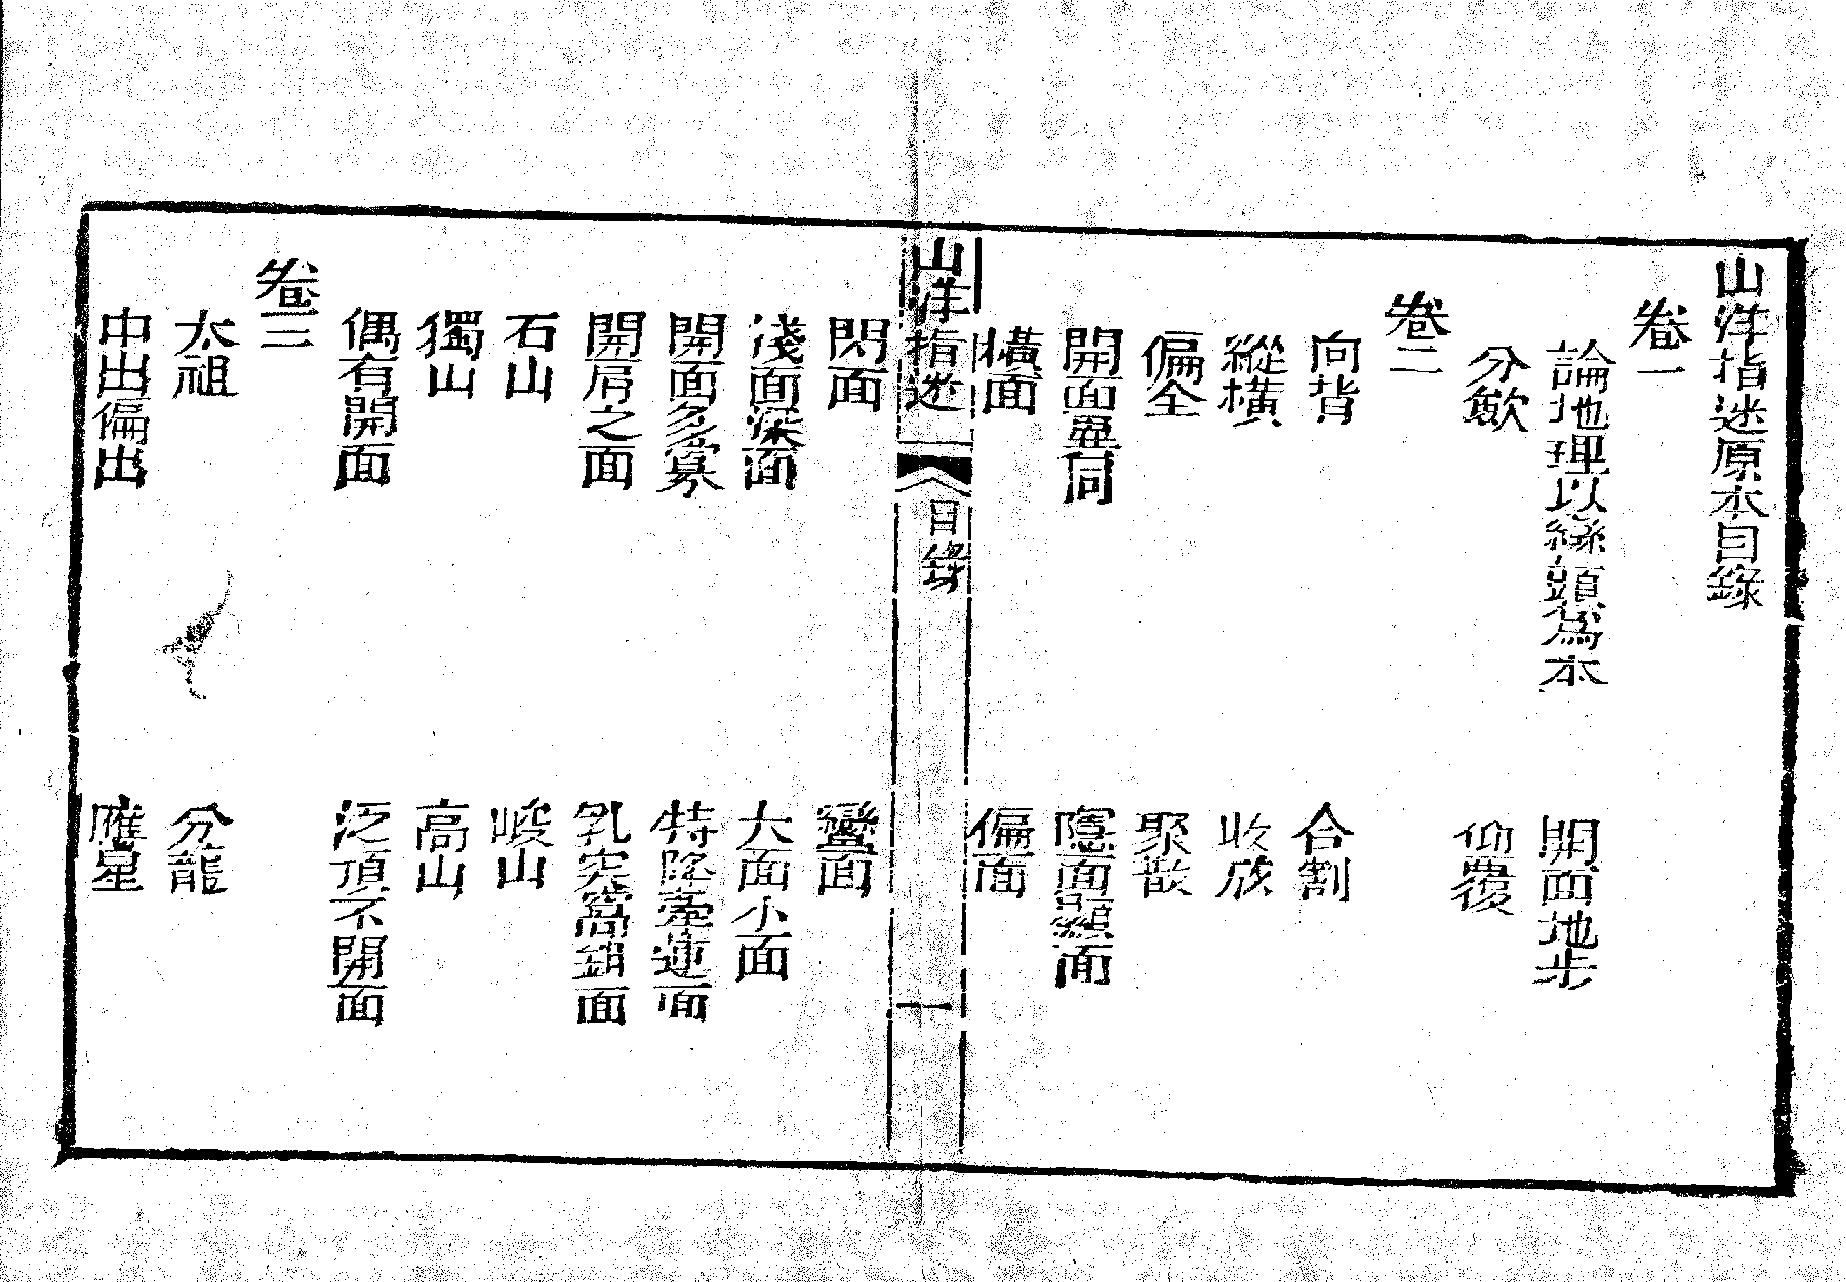 山洋指迷原本目錄
卷一
論地理以巒頭爲本　開面地步
分歛　仰覆
卷二
向背　合割
縱橫　收放
偏全　聚散
開面異同　隱面顯面
橫面　偏面
山洋指迷　目錄　一
閃面　蠻面
淺面深面　大面小面
開面多寡　特降牽連面
開肩之面　乳突窩鉗面
石山　峻山
獨山　高山
偶有開面　泛頂不開面
卷三
太祖　分龍
中出偏出　應星